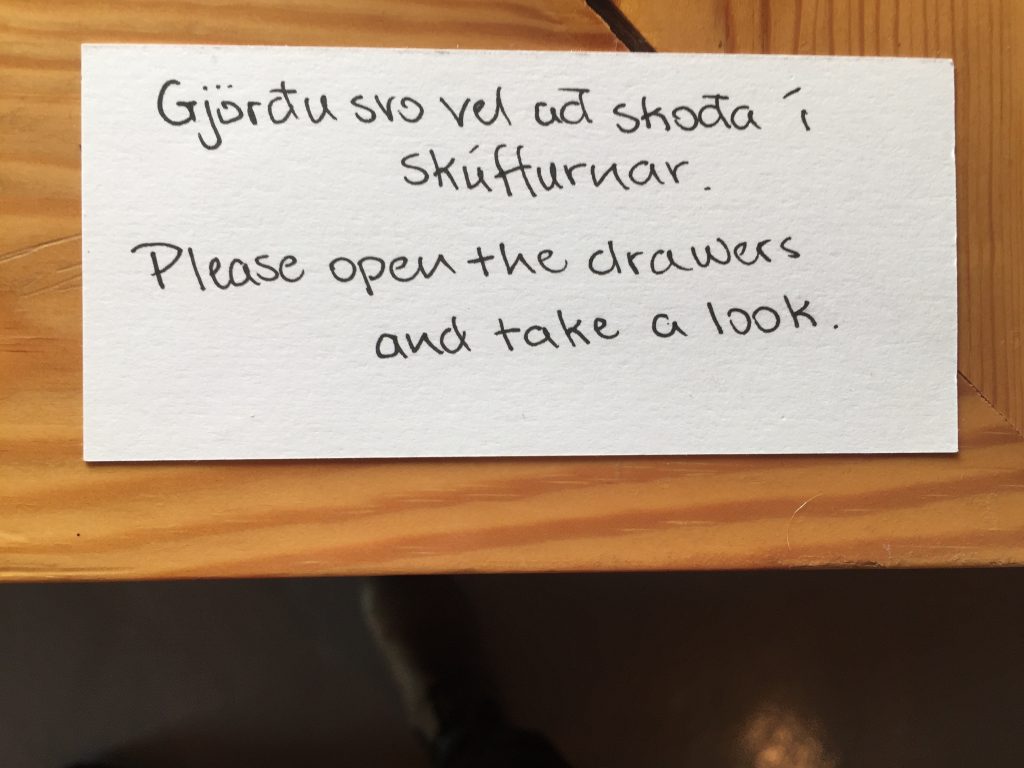 Gjörðu svo vel að skoða í
skúffurnar.
Please open the drawers
and take a look.